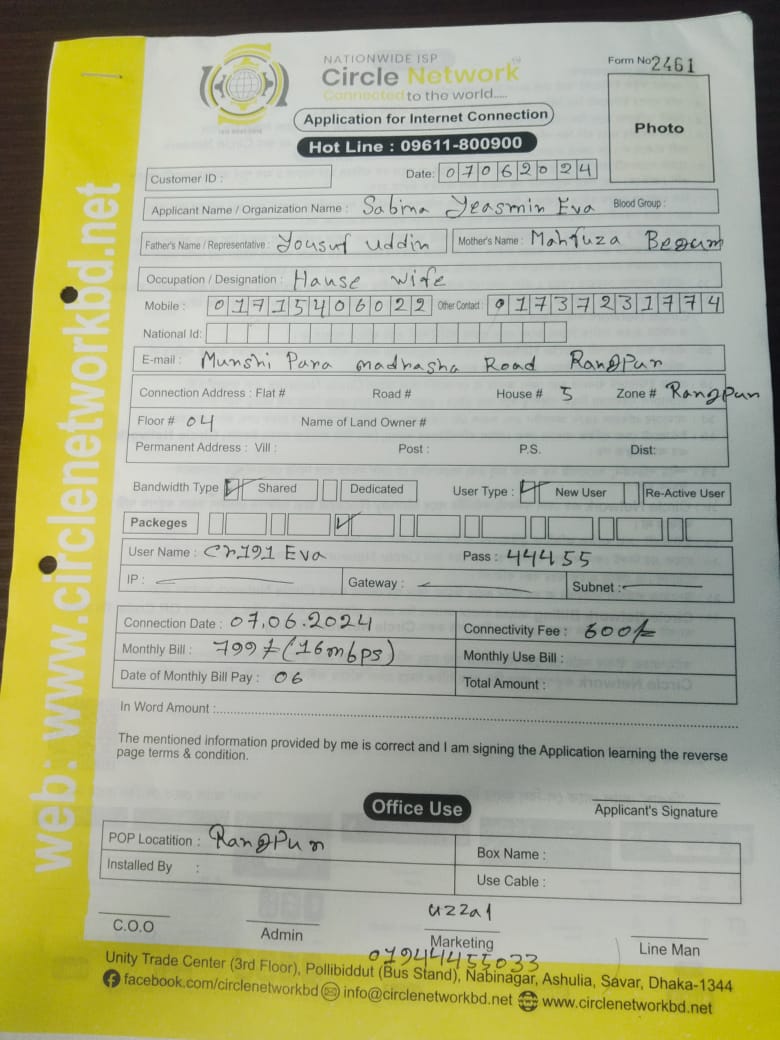 NATIONWIDE ISP
Circle Network
Connected to the world.....
ISO 9001:2015
Form No 2461
Application for Internet Connection
Photo
Hot Line : 09611-800900
Customer ID :
Date: 07062024
Applicant Name / Organization Name : Sabina Yeasmin Eva Blood Group :
Father's Name / Representative : Yousuf uddin Mother's Name : Mahfuza Begum
Occupation / Designation : Hause wife
Mobile : 01715406022 Other Contact : 01737231774
National Id:
E-mail : Munshi Para madrasha Road Rangpur
Connection Address : Flat # Road # House # 5 Zone # Rangpur
Floor # 04 Name of Land Owner #
Permanent Address : Vill : Post : P.S. Dist:
Bandwidth Type Shared Dedicated User Type : New User Re-Active User
Packeges
User Name : Cr191 Eva Pass : 44455
IP : Gateway : Subnet :
Connection Date : 07.06.2024 Connectivity Fee : 600/=
Monthly Bill : 799/= (16mbps) Monthly Use Bill :
Date of Monthly Bill Pay : 06 Total Amount :
In Word Amount :
The mentioned information provided by me is correct and I am signing the Application learning the reverse
page terms & condition.
Applicant's Signature
Office Use
POP Locatition : Rangpur Box Name :
Installed By : Use Cable :
uzzal
C.O.O Admin Marketing Line Man
01944455033
Unity Trade Center (3rd Floor), Pollibiddut (Bus Stand), Nabinagar, Ashulia, Savar, Dhaka-1344
facebook.com/circlenetworkbd info@circlenetworkbd.net www.circlenetworkbd.net
web: www.circlenetworkbd.net